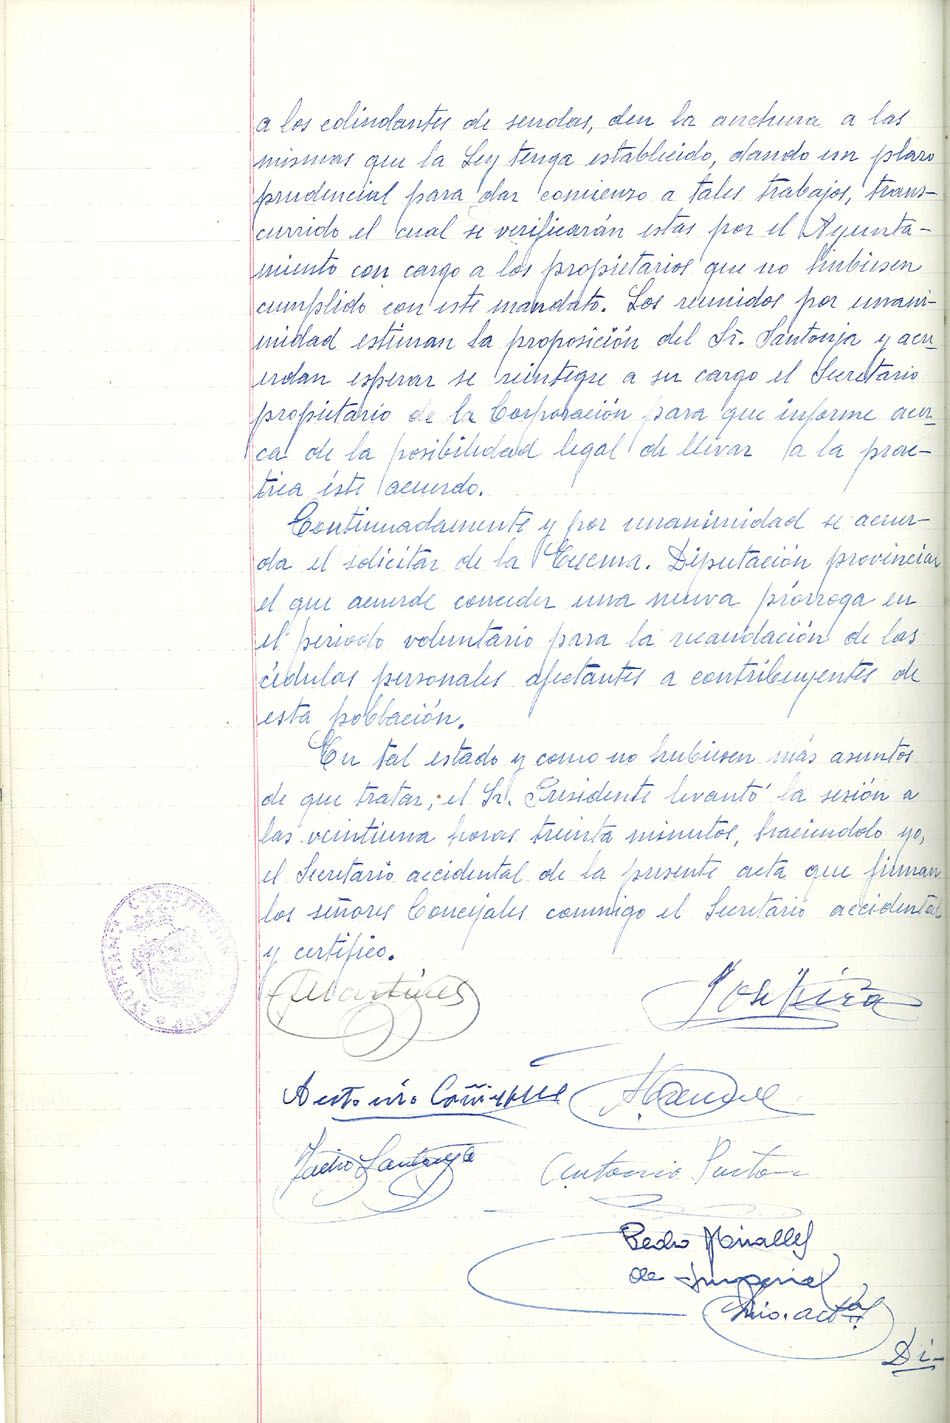 a los colindantes de sendas, den la anchura a las
mismas que la Ley tenga establecido, dando un plazo
prudencial para dar comienzo a tales trabajos, trans-
currido el cual se verificarán estas por el Ayunta-
miento con cargo a los propietarios que no hubiesen
cumplido con este mandato. Los reunidos por unani-
midad estiman la proposición del Sr. Santonja y acu-
erdan esperar se reintegre a su cargo el Secretario
propietario de la Corporación para que informe acer-
ca de la posibilidad legal de llevar a la prac-
tica éste acuerdo.
Continuadamente y por unanimidad se acuer-
da el solicitar de la Excma. Diputación provincial
el que acuerde conceder una nueva prórroga en
el periodo voluntario para la recaudación de las
cédulas personales afectantes a contribuyentes de
esta población.
En tal estado y como no hubiesen más asuntos
de que tratar, el Sr. Presidente levantó la sesión a
las veintiuna horas treinta minutos, haciendolo yo,
el Secretario accidental de la presente acta que firman
los señores Concejales conmigo el Secretario accidental
y certifico.
AYUNTAMTO CONSTITUCIONAL
Martínez
José
Antonio
Antonio
Pedro Miralles
de Imperial
Srio. acctal
Di-